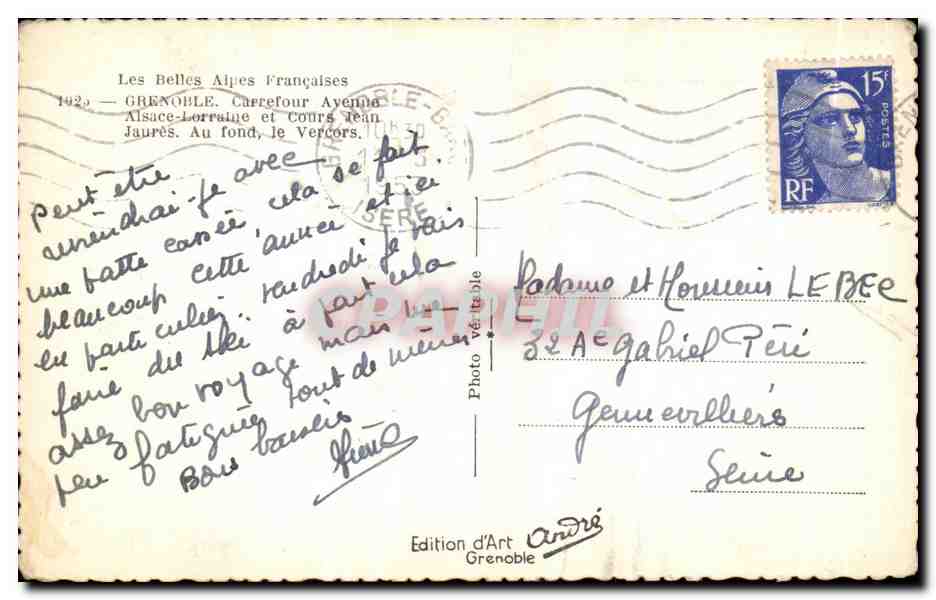 Les Belles Alpes Françaises
1925 — GRENOBLE. Carrefour Avenue
Alsace-Lorraine et Cours Jean
Jaurès. Au fond, le Vercors.
GRENOBLE-GARE
ISERE
15F
POSTES
RF
Peut être
reviendrai-je avec
une patte cassée, cela se fait
beaucoup cette année et ici
en particulier. vendredi je vais
faire du ski à part cela
assez bon voyage mais un
peu fatiguée tout de même
Bons baisers
Photo véritable
CPAPHIL
Madame et Monsieur LE BEC
32 Ae Gabriel Péri
Gennevilliers
Seine
Edition d'Art André
Grenoble